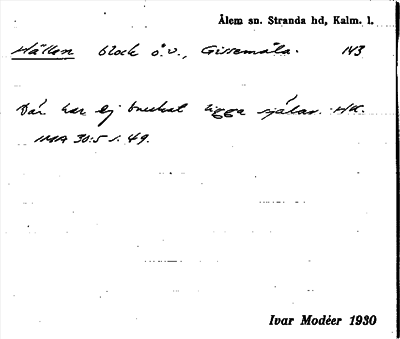 Ålem sn. Stranda hd, Kalm. l.
Hällen block ö.v., Gissemåla. NV3
Där har ej brukat ligga själar. HK.
IMA 30:5 s. 49.
Ivar Modéer 1930